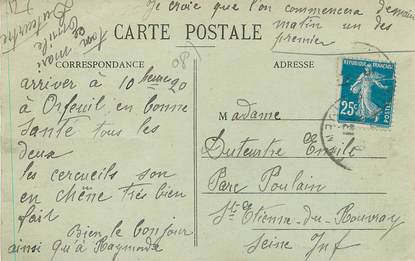 Je croie que l'on commencera demain
matin un des
premier
ton mari
Emile
Duteurtre
CARTE POSTALE
CORRESPONDANCE
ADRESSE
arriver à 10 heure 20
à Orfeuil en bonne
santé tous les
deux
les cercueils son
en chêne très bien
fait
Bien le bonjour
ainsi qu'à Raymonde
REPUBLIQUE FRANÇAISE
25c
POSTES
Madame
Duteurtre Emile
Parc Poulain
St Etienne-du-Rouvray
Seine Inf